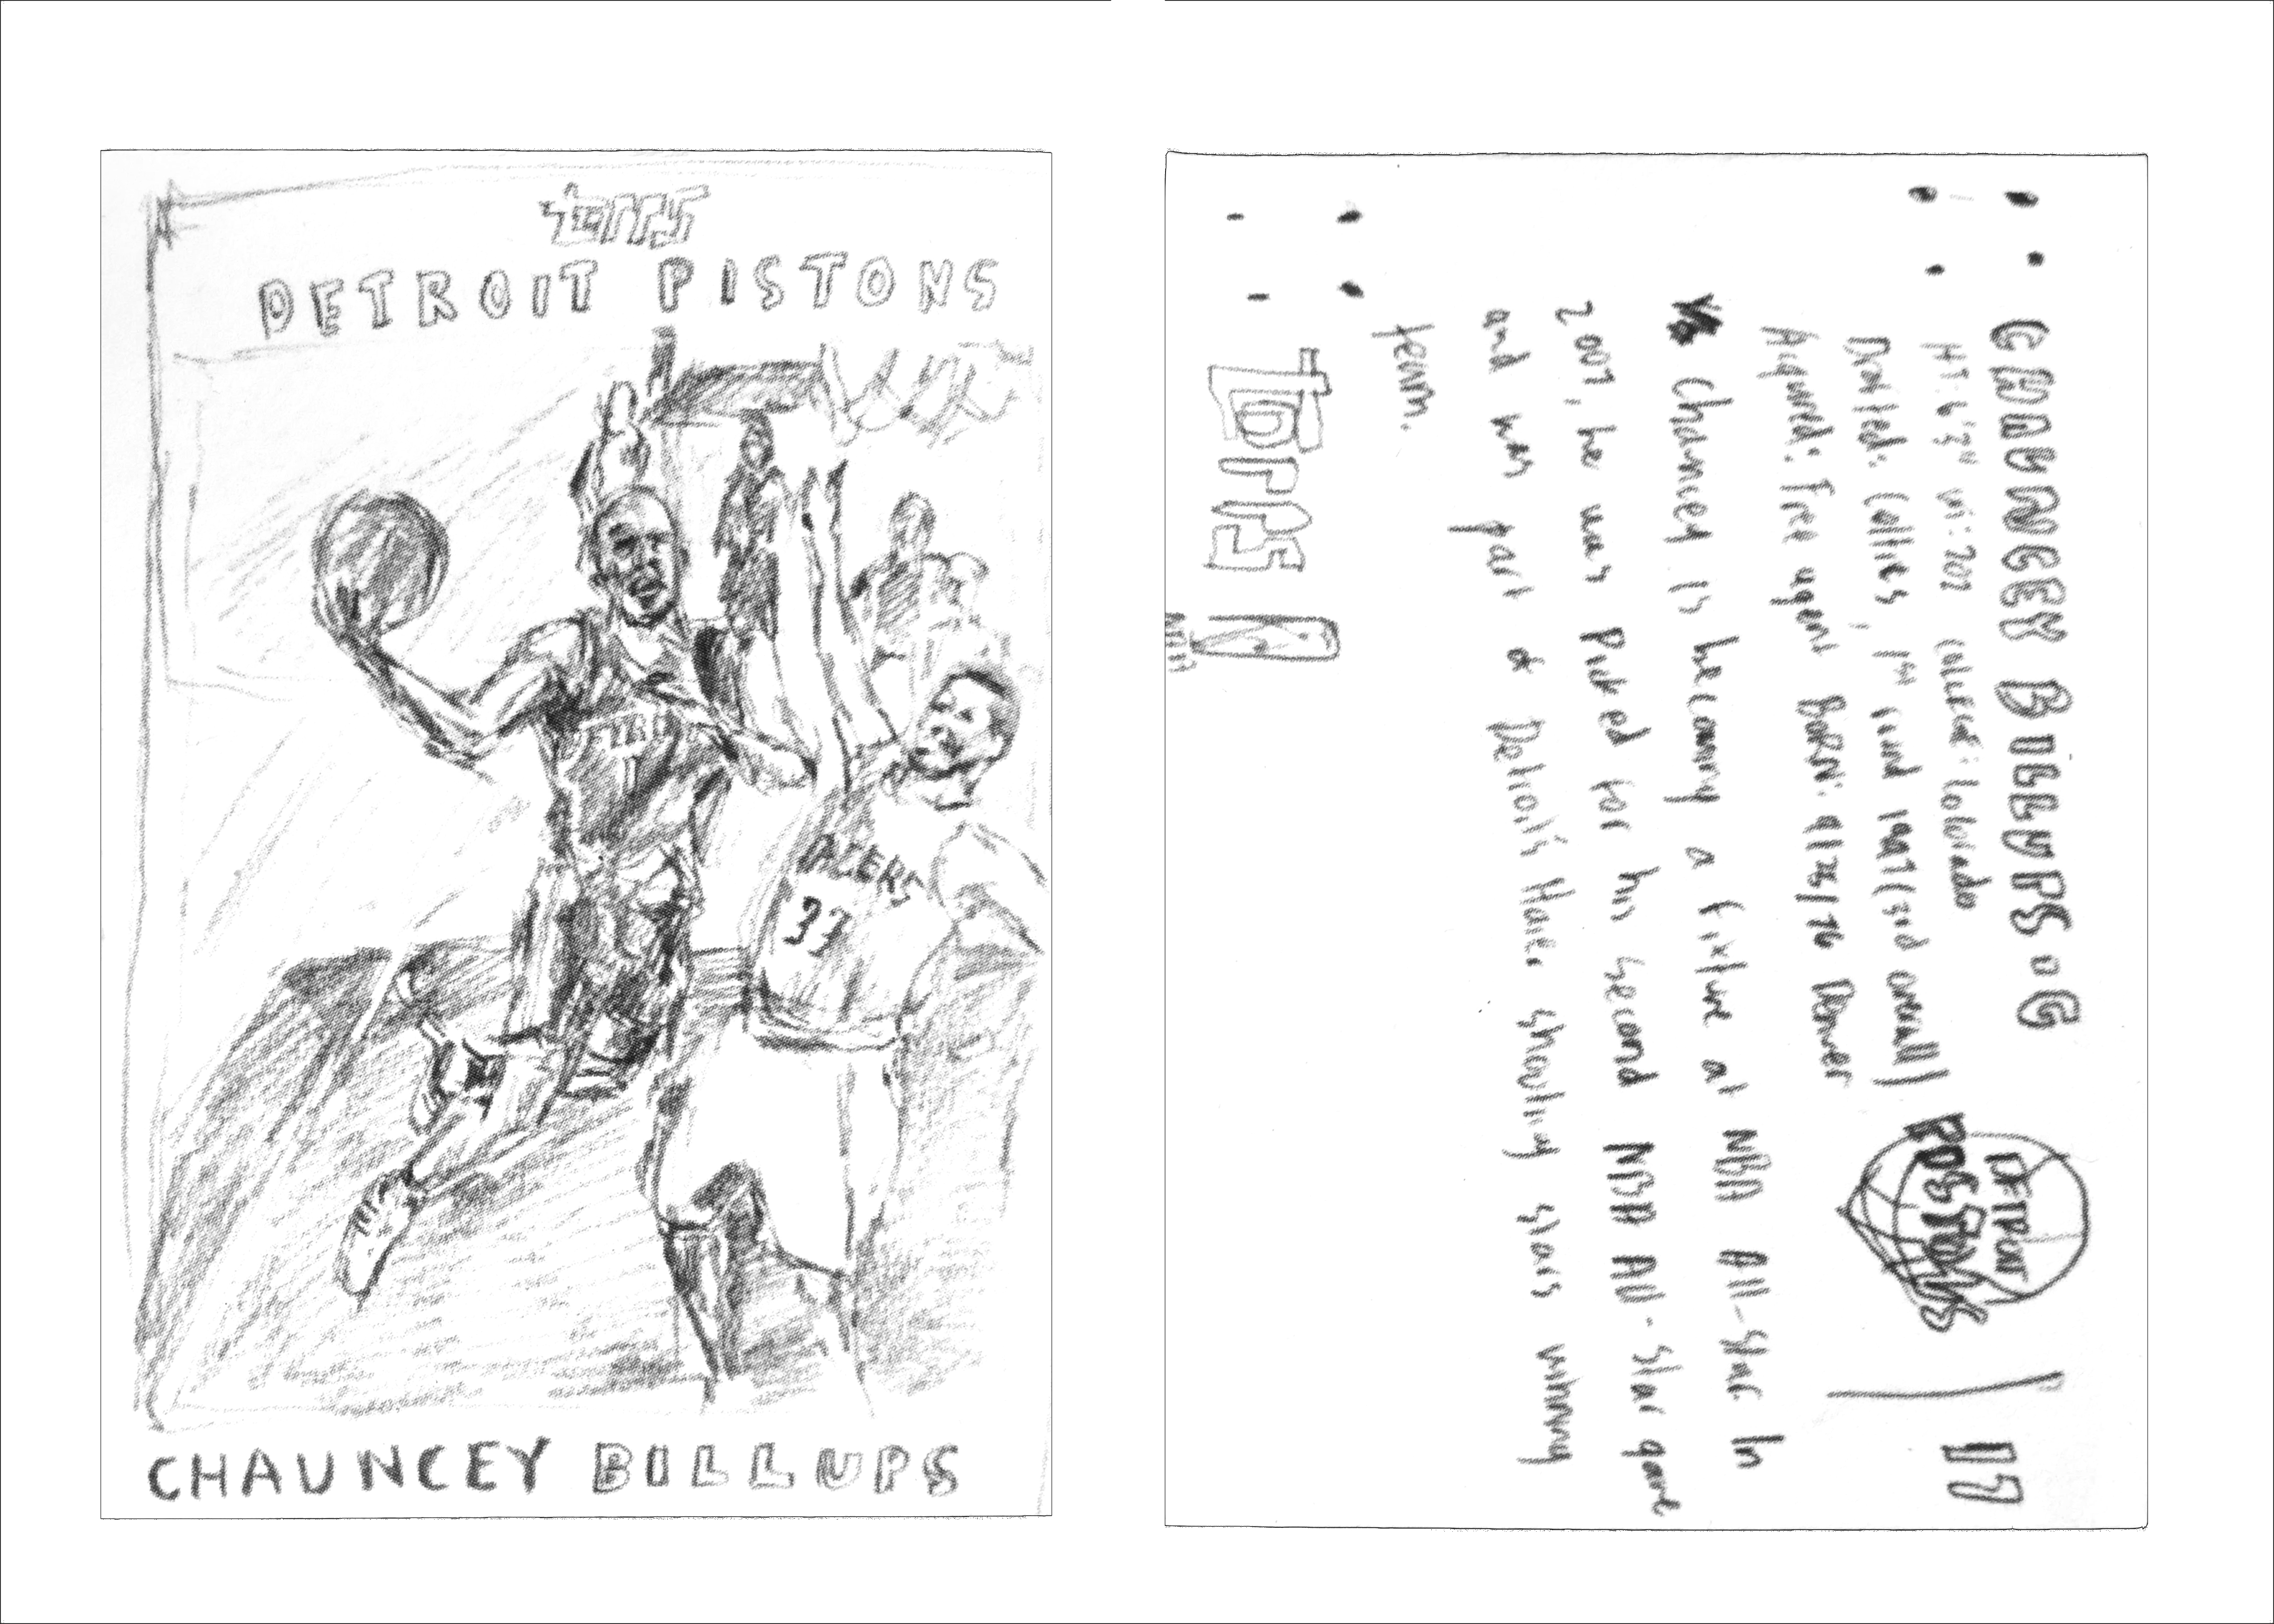 TOPPS
DETROIT PISTONS
DETROIT
1
PACERS
33
CHAUNCEY BILLUPS
CHAUNCEY BILLUPS • G
HT: 6'3" WT: 202 COLLEGE: Colorado
Drafted: Celtics, 1st round 1997 (3rd overall)
Acquired: Free agent BORN: 9/25/76 Denver
DETROIT
PISTONS
17
Chauncey is becoming a fixture at NBA All-Star. In
2007, he was picked for his second NBA All-Star game
and was part of Detroit's Haier shooting stars winning
team.
TOPPS